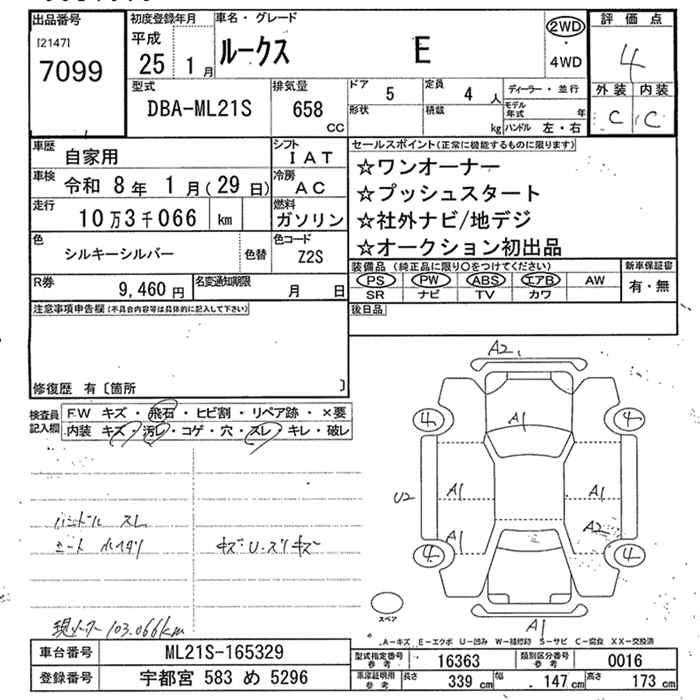 出品番号
[2147]
7099
初度登録年月
平成
25 1月
車名・グレード
ルークス E
2WD
・
4WD
評価点
4
外装 内装
C C
型式
DBA-ML21S
排気量
658
CC
ドア 5
定員 4 人
ディーラー・並行
形状
積載 kg
モデル年式 年
ハンドル 左・右
車歴 自家用
シフト IAT
車検 令和 8年 1月(29日)
冷房 AC
走行 10万3千066 km
燃料 ガソリン
色 シルキーシルバー
色替
色コード Z2S
R券 9,460円
名変通知期限 月 日
セールスポイント(正常に機能するものに限ります)
☆ワンオーナー
☆プッシュスタート
☆社外ナビ/地デジ
☆オークション初出品
装備品 (純正品に限り○をつけてください)
新車保証書
PS PW ABS エアB AW
有・無
SR ナビ TV カワ
注意事項申告欄(不具合内容等は具体的に記入して下さい)
後日品
修復歴 有〔箇所 〕
検査員記入欄
F.W キズ・飛石・ヒビ割・リペア跡・×要
内装 キズ・汚レ・コゲ・穴・スレ・キレ・破レ
ハンドル スレ
キズ U・スリキズ
現メーター103.066km
A2
4 A1 4
U2 A1 A1
A1 A2
4 4
スペア
A1
A-キズ E-エクボ U-凹み W-補修跡 S-サビ C-腐食 XX-交換済
車台番号 ML21S-165329
型式指定番号 参考 16363
類別区分番号 参考 0016
登録番号 宇都宮 583 め 5296
車庫証明用 参考
長さ 339 cm
幅 147 cm
高さ 173 cm